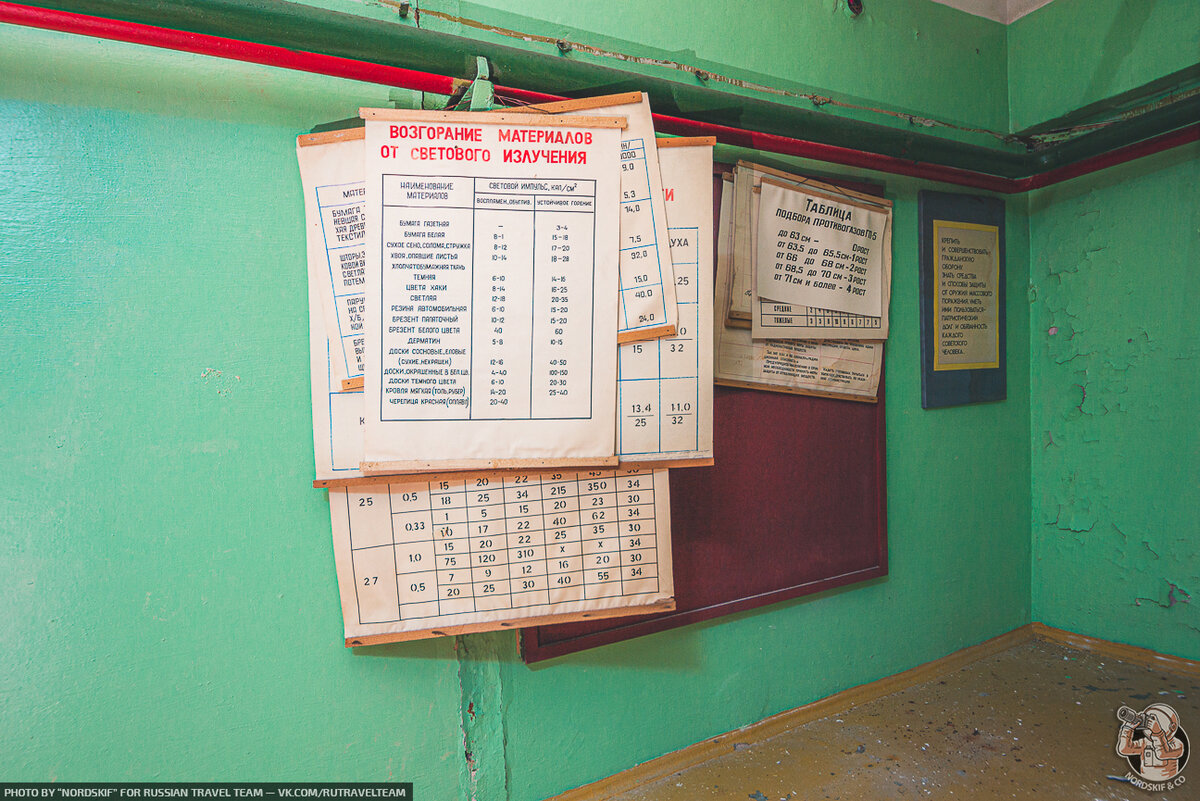 ВОЗГОРАНИЕ МАТЕРИАЛОВ
ОТ СВЕТОВОГО ИЗЛУЧЕНИЯ
НАИМЕНОВАНИЕ МАТЕРИАЛОВ
СВЕТОВОЙ ИМПУЛЬС, КАЛ/СМ²
ВОСПЛАМЕН., ОБУГЛИВ. УСТОЙЧИВОЕ ГОРЕНИЕ
БУМАГА ГАЗЕТНАЯ — 3-4
БУМАГА БЕЛАЯ 8-1 15-18
СУХОЕ СЕНО, СОЛОМА, СТРУЖКА 8-12 17-20
ХВОЯ, ОПАВШИЕ ЛИСТЬЯ 10-14 18-28
ХЛОПЧАТОБУМАЖНАЯ ТКАНЬ
ТЕМНАЯ 6-10 14-16
ЦВЕТА ХАКИ 8-14 16-25
СВЕТЛАЯ 12-18 20-35
РЕЗИНА АВТОМОБИЛЬНАЯ 6-10 15-20
БРЕЗЕНТ ПАЛАТОЧНЫЙ 10-12 15-20
БРЕЗЕНТ БЕЛОГО ЦВЕТА 40 60
ДЕРМАТИН 5-8 10-15
ДОСКИ СОСНОВЫЕ, ЕЛОВЫЕ
(СУХИЕ, НЕКРАШЕН.) 12-16 40-50
ДОСКИ, ОКРАШЕННЫЕ В БЕЛ. ЦВ. 4-40 100-150
ДОСКИ ТЕМНОГО ЦВЕТА 6-10 20-30
КРОВЛЯ МЯГКАЯ (ТОЛЬ, РУБЕР.) 14-20 25-40
ЧЕРЕПИЦА КРАСНАЯ (ОПЛАВЛ) 20-40
9,0
5,3
14,0
7,5
92,0
15,0
40,0
24,0
УХА
25
15 32
13.4 11.0
25 32
25 0,5 15 20 22 35 45
18 25 34 215 350 34
0,33 1 5 15 20 23 30
10 17 22 40 62 34
1,0 15 20 22 25 35 30
75 120 310 x x 34
27 0,5 7 9 12 16 20 30
20 25 30 40 55 34
ТАБЛИЦА
ПОДБОРА ПРОТИВОГАЗОВ ГП-5
ДО 63 СМ — 0 РОСТ
ОТ 63.5 ДО 65.5 СМ - 1 РОСТ
ОТ 66 ДО 68 СМ - 2 РОСТ
ОТ 68,5 ДО 70 СМ - 3 РОСТ
ОТ 71 СМ И БОЛЕЕ - 4 РОСТ
СРЕДНИЕ
ТЯЖЕЛЫЕ
КРЕПИТЬ
И СОВЕРШЕНСТВОВАТЬ
ГРАЖДАНСКУЮ
ОБОРОНУ.
ЗНАТЬ СРЕДСТВА
И СПОСОБЫ ЗАЩИТЫ
ОТ ОРУЖИЯ МАССОВОГО
ПОРАЖЕНИЯ, УМЕТЬ
ИМИ ПОЛЬЗОВАТЬСЯ-
ПАТРИОТИЧЕСКИЙ
ДОЛГ И ОБЯЗАННОСТЬ
КАЖДОГО
СОВЕТСКОГО
ЧЕЛОВЕКА.
PHOTO BY "NORDSKIF" FOR RUSSIAN TRAVEL TEAM — VK.COM/RUTRAVELTEAM
NORDSKIF & CO